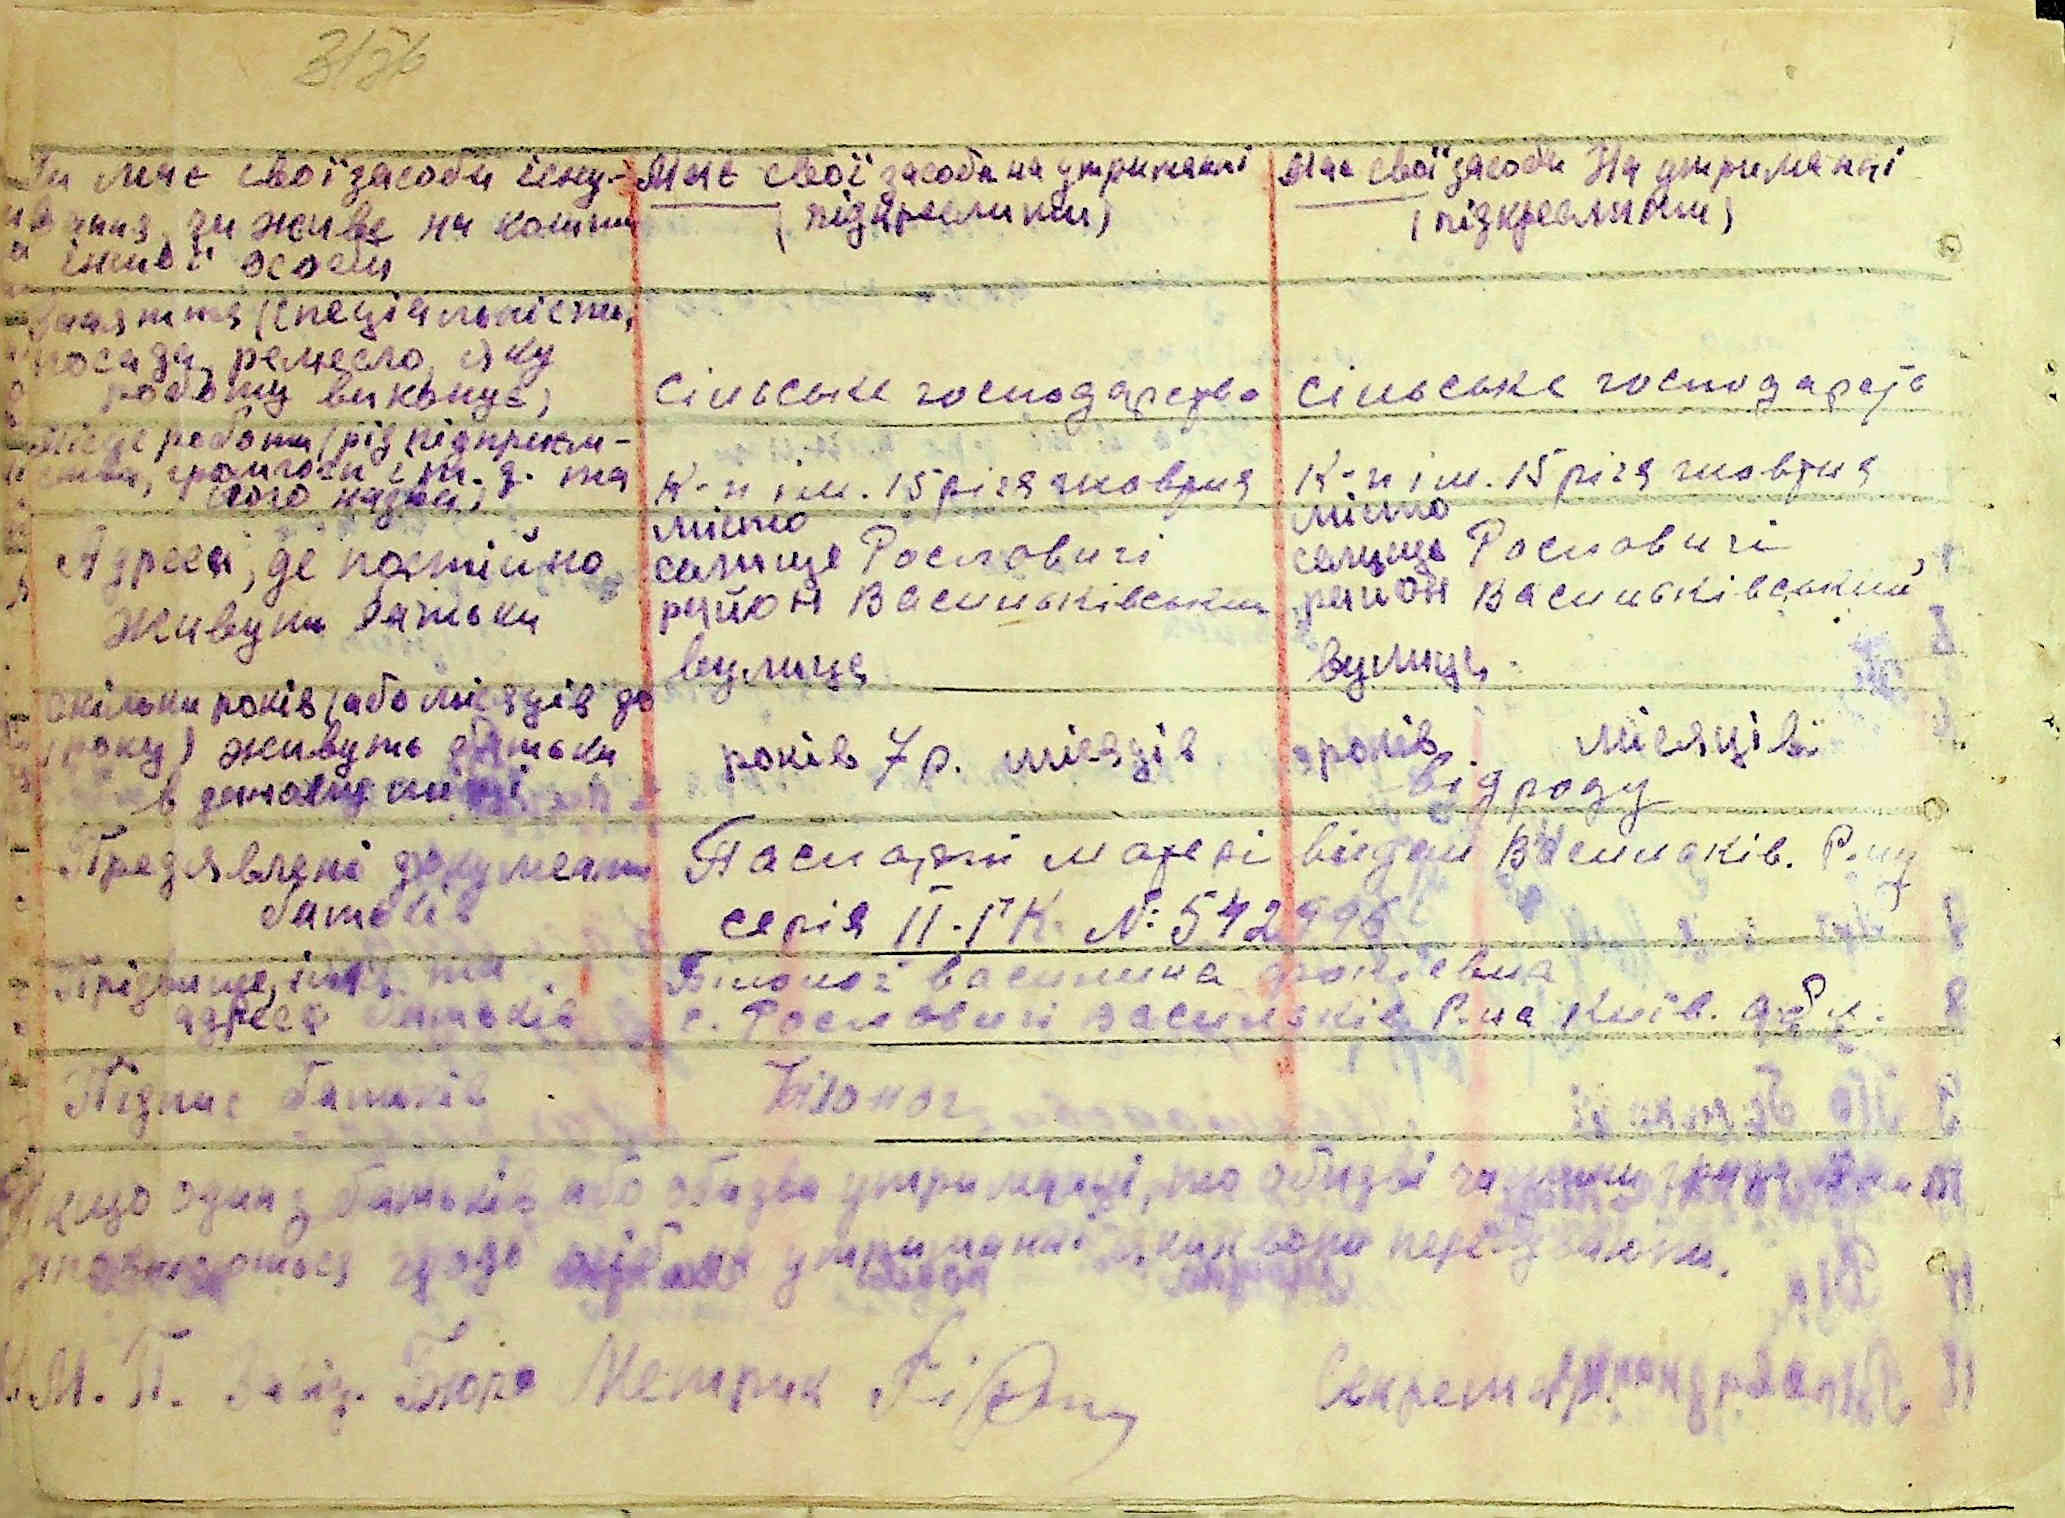 Чи має свої засоби існу-
вання, чи живе на кошти
іншої особи
Має свої засоби на утриманні
(підкреслити)
Має свої засоби На утриманні
(підкреслити)
Заняття (спеціальність,
посада, ремесло, яку
роботу виконує)
сільське господарство
сільське господарств
Місце роботи (рід підприєм-
ства, громгосп і т. д. та
його назва)
К-п ім. 15 річя жовтня
К-п ім. 15 річя жовтня
Адреса, де постійно
живуть батьки
місто
селище Рословичі
район Васильківський
вулиця
місто
селище Рословичі
район Васильківський
вулиця
скільки років (або місяців до
року) живуть батьки
в даному місці
років 7 р. місяців
років місяців
від роду
Предявлені документи
батьків
Паспорт матері видан Васильків. Р.
серія II-ГК. №: 542996
Прізвище, ім'я та
адреса батьків
Білоног Василина
с. Рословичі Васильків Р-на Київ. обл.
Підпис батьків
Білоног
Якщо один з батьків або обидва утриманні, то обидві
утриманні яких вони перебувають.
М. П. Завід. Бюро Метрик
Секретар